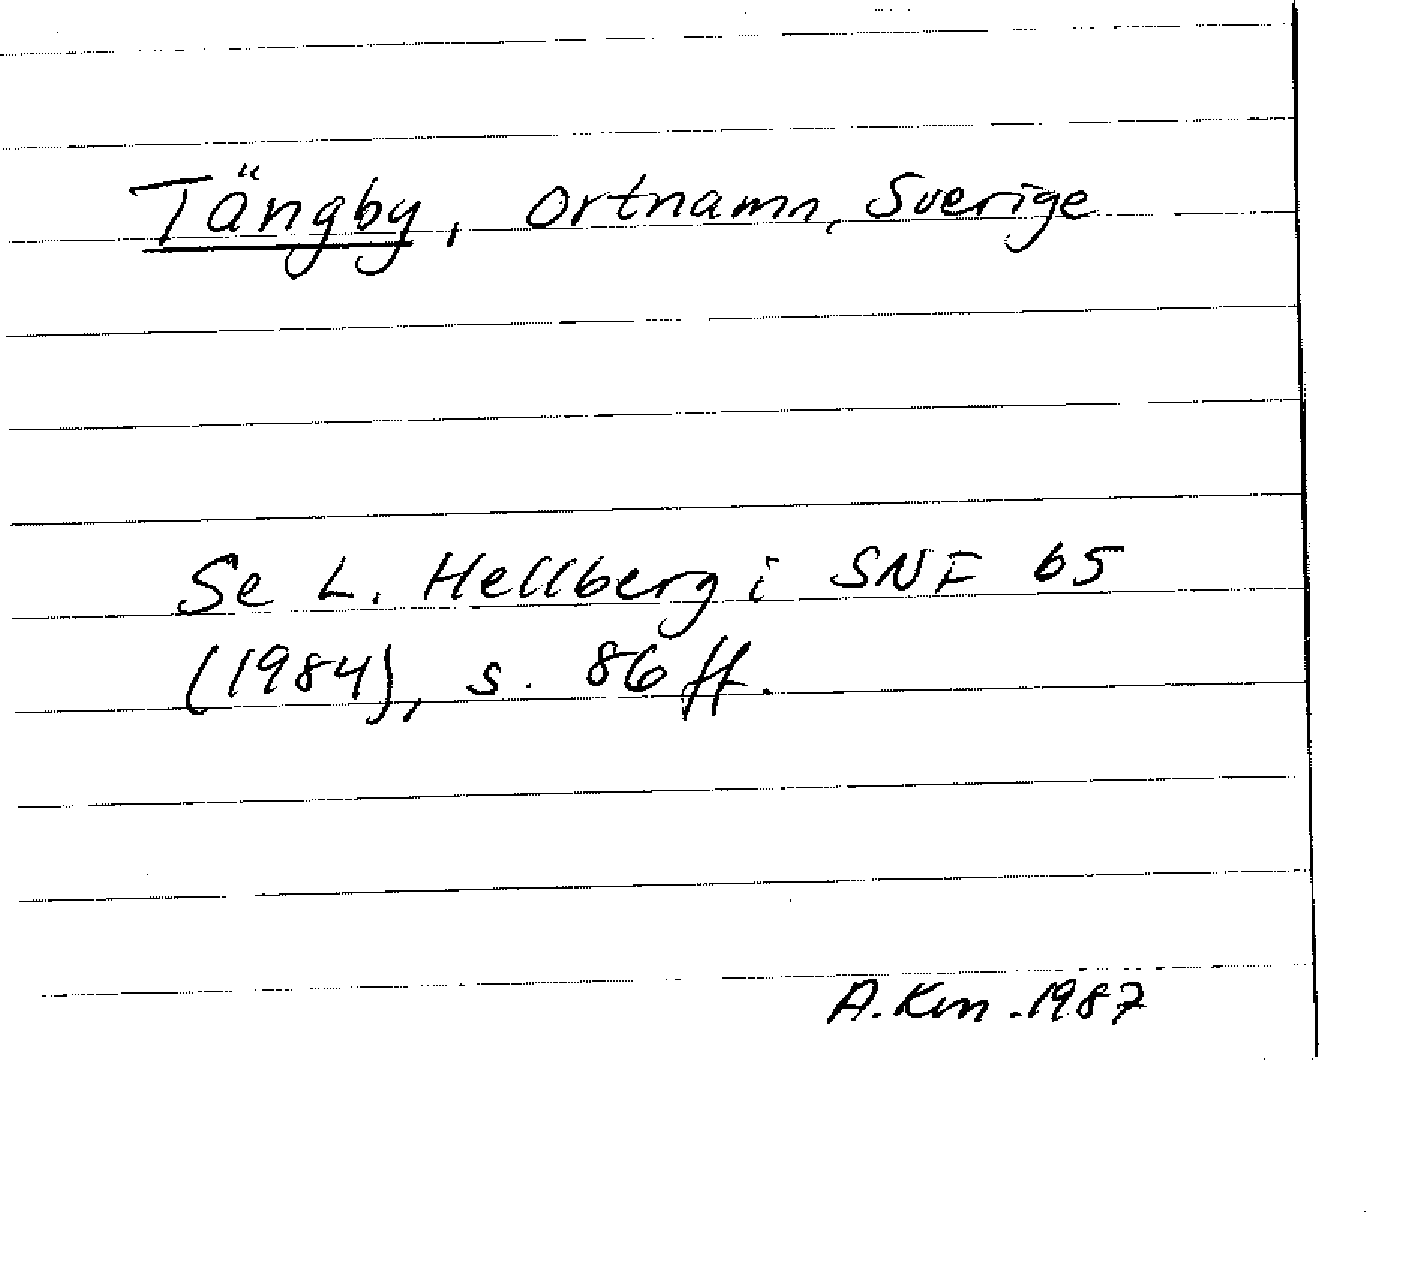 Tängby, ortnamn, Sverige
Se L. Hellberg i SNF 65
(1984), s. 86 ff.
A. Km. 1987